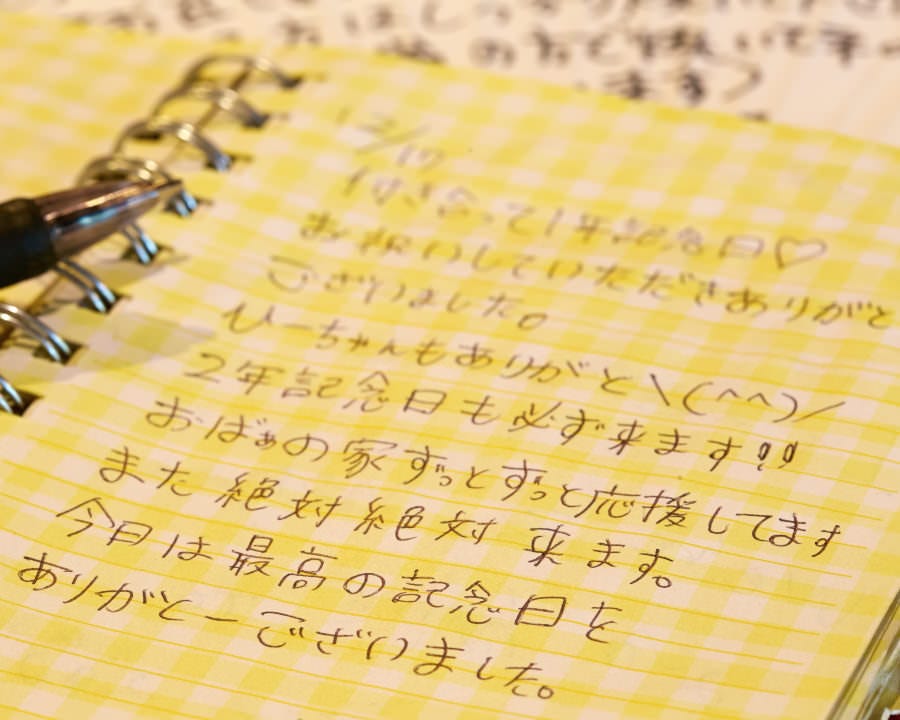 12/17
付き合って1年記念日♡
お祝いしていただきありがと
ございました。
ひーちゃんもありがと\(^^)/
2年記念日も必ず来ます!!
おばぁの家ずっとずっと応援してます
また絶対絶対来ます。
今日は最高の記念日を
ありがとーございました。